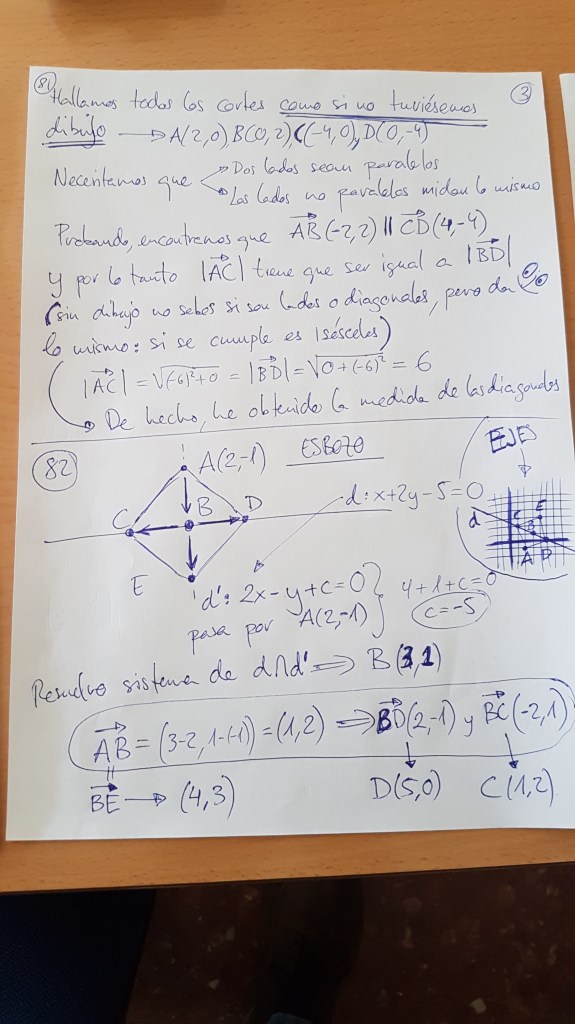 81 Hallamos todos los cortes como si no tuviésemos 3
dibujo → A(2,0) B(0,2), C(-4,0), D(0,-4)
Necesitamos que → Dos lados sean paralelos
→ Los lados no paralelos midan lo mismo
Probando, encontramos que AB(-2,2) || CD(4,-4)
y por lo tanto |AC| tiene que ser igual a |BD|
(sin dibujo no sabes si son lados o diagonales, pero da
lo mismo: si se cumple es isósceles)
|AC| = √(-6)²+0 = |BD| = √0+(-6)² = 6
→ De hecho, he obtenido la medida de las diagonales
82 A(2,-1) ESBOZO EJES
C B D d: x+2y-5=0
d C E B A D
E
d': 2x-y+c=0 4+1+c=0
pasa por A(2,-1) c=-5
Resuelvo sistema de d∩d' ⇒ B(3,1)
AB = (3-2, 1-(-1)) = (1,2) ⇒ BD(2,-1) y BC(-2,1)
||
BE → (4,3) D(5,0) C(1,2)